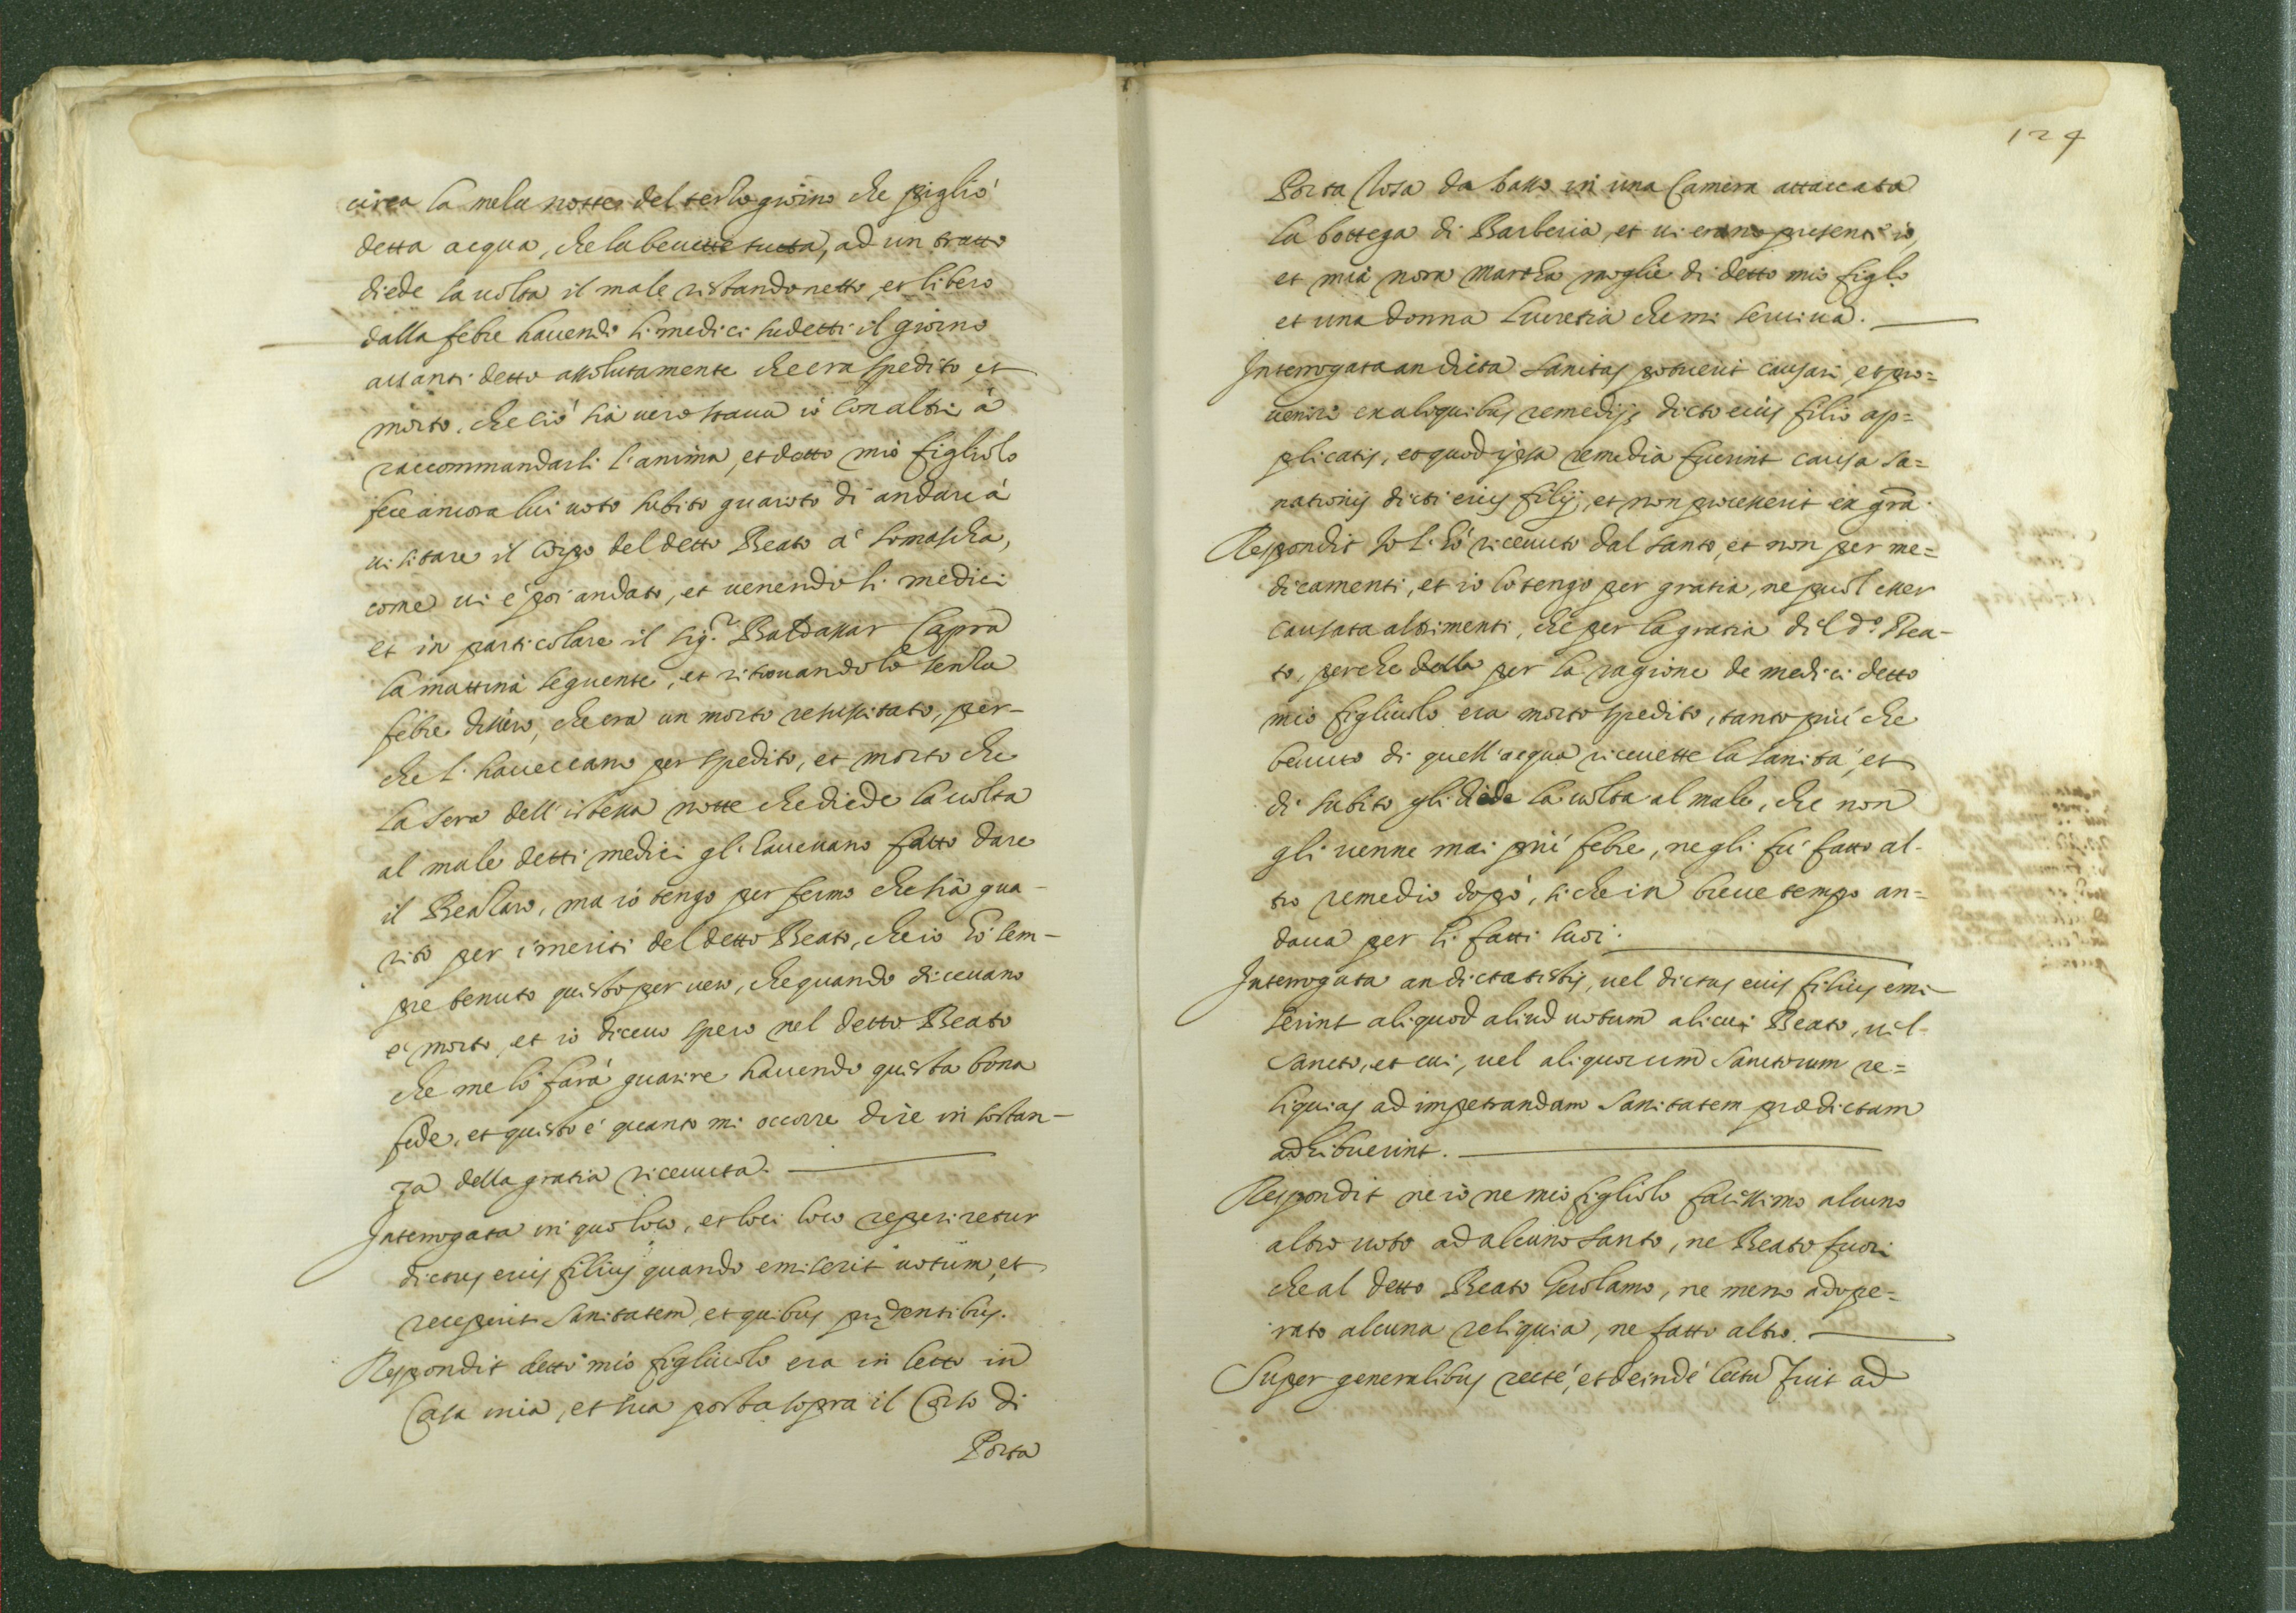 circa la meza notte del terzo giorno che pigliò
detta acqua, che la beuette tutta, ad un tratto
diede la uolta il male restando netto, et libero
dalla febre hauendo li medici sudetti il giorno
auanti detto assolutamente che era spedito et
morto, che ciò sia uero staua iò con altri à
raccommandarli l'anima, et detto mio figliolo
fece ancora lui uoto subito guarito di andare à
uisitare il Corpo del detto Beato à Somascha,
come ui è poi andato, et uenendo li medici
et in particolare il sig.r Baldassar Capra
la mattina seguente, et ritrouandolo senza
febre dissero, che era un morto resuscitato, per-
che l'haueuano per spedito, et morto che
la sera dell'istessa notte che diede la uolta
al male detti medici gli haueuano fatto dare
il Bealzaro, ma iò tengo per fermo che sia gua-
rito per i meriti del detto Beato, che io hò sem-
pre tenuto questo per uero, che quando diceuano
è morto, et iò diceuo spero nel detto Beato
che me lo farà guarire hauendo questa bona
fede, et questo è quanto mi occorre dire in sostan-
za della gratia riceuuta.
Interrogata in quo loco, et loci loco reperiretur
dictus eius filius quando emiserit uotum, et
receperit sanitatem, et quibus prędentibus.
Respondit detto mio figliuolo era in letto in
Casa mia, et sua posta sopra il Corso di
Porta
124
Porta Tosa da basso in una Camera attaccata
la bottega di Barberia, et ui erano presenti iò,
et mia nora Martha moglie di detto mio figlo
et una donna Lucretia che mi seruiua.
Interrogata an dicta sanitas potuerit causari, et pro=
uenire ex aliquibus remedijs dicto eius filio ap=
plicatis, et quod ipsa remedia fuerint causa sa=
nationis dicti eius filij, et non processerit ex gra.
Respondit Io l'hò riceuuto dal santo, et non per me=
dicamenti, et io lo tengo per gratia, ne puol esser
causata altrimenti, che per la gratia del d.o Bea-
to, perche della per la ragione de medici detto
mio figliuolo era morto spedito, tanto più che
beuuto di quell'acqua riceuette la sanità, et
di subito gli diede la uolta al male, che non
gli uenne mai più febre, ne gli fù fatto al-
tro remedio dopò, si che in breue tempo an=
daua per li fatti suoi.
Interrogata an dicta testis, uel dictus eius filius emi
serint aliquod aliud uotum alicui Beato, uel
Sancto, et cui, uel aliquorum Sanctorum re=
liquias ad impetrandam sanitatem prædictam
adhibuerint.
Respondit ne iò ne mio figliolo facissimo alcuno
altro uoto ad alcuno santo, ne Beato fuori
che al detto Beato Gerolamo, ne meno adope=
rato alcuna reliquia, ne fatto altro.
Super generalibus rectè, et deindè lectu fuit ad